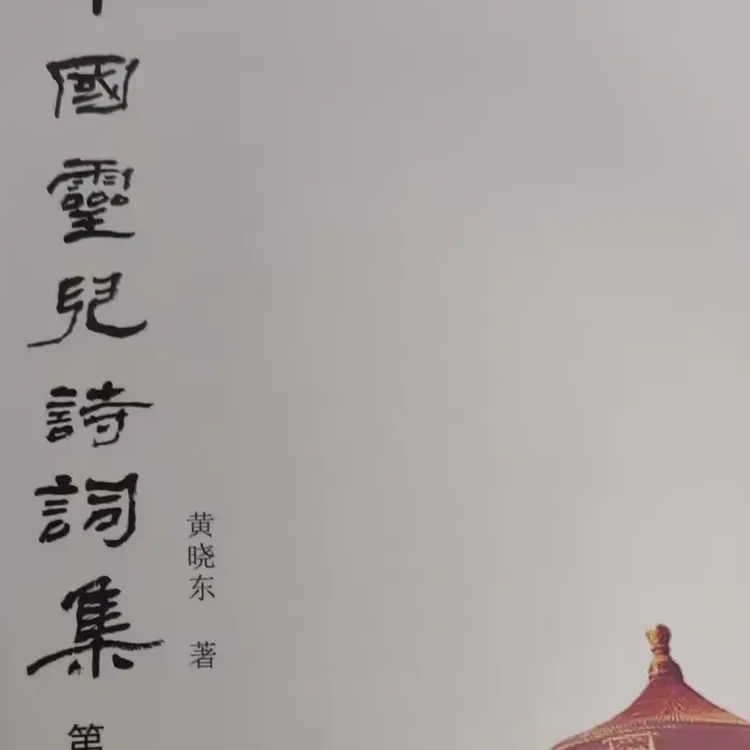 中國靈兒詩詞集
第
黄晓东 著